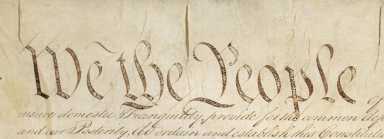 We the People
insure domestic Tranquility, provide for the common
and our Posterity, do ordain and establish this Constitut